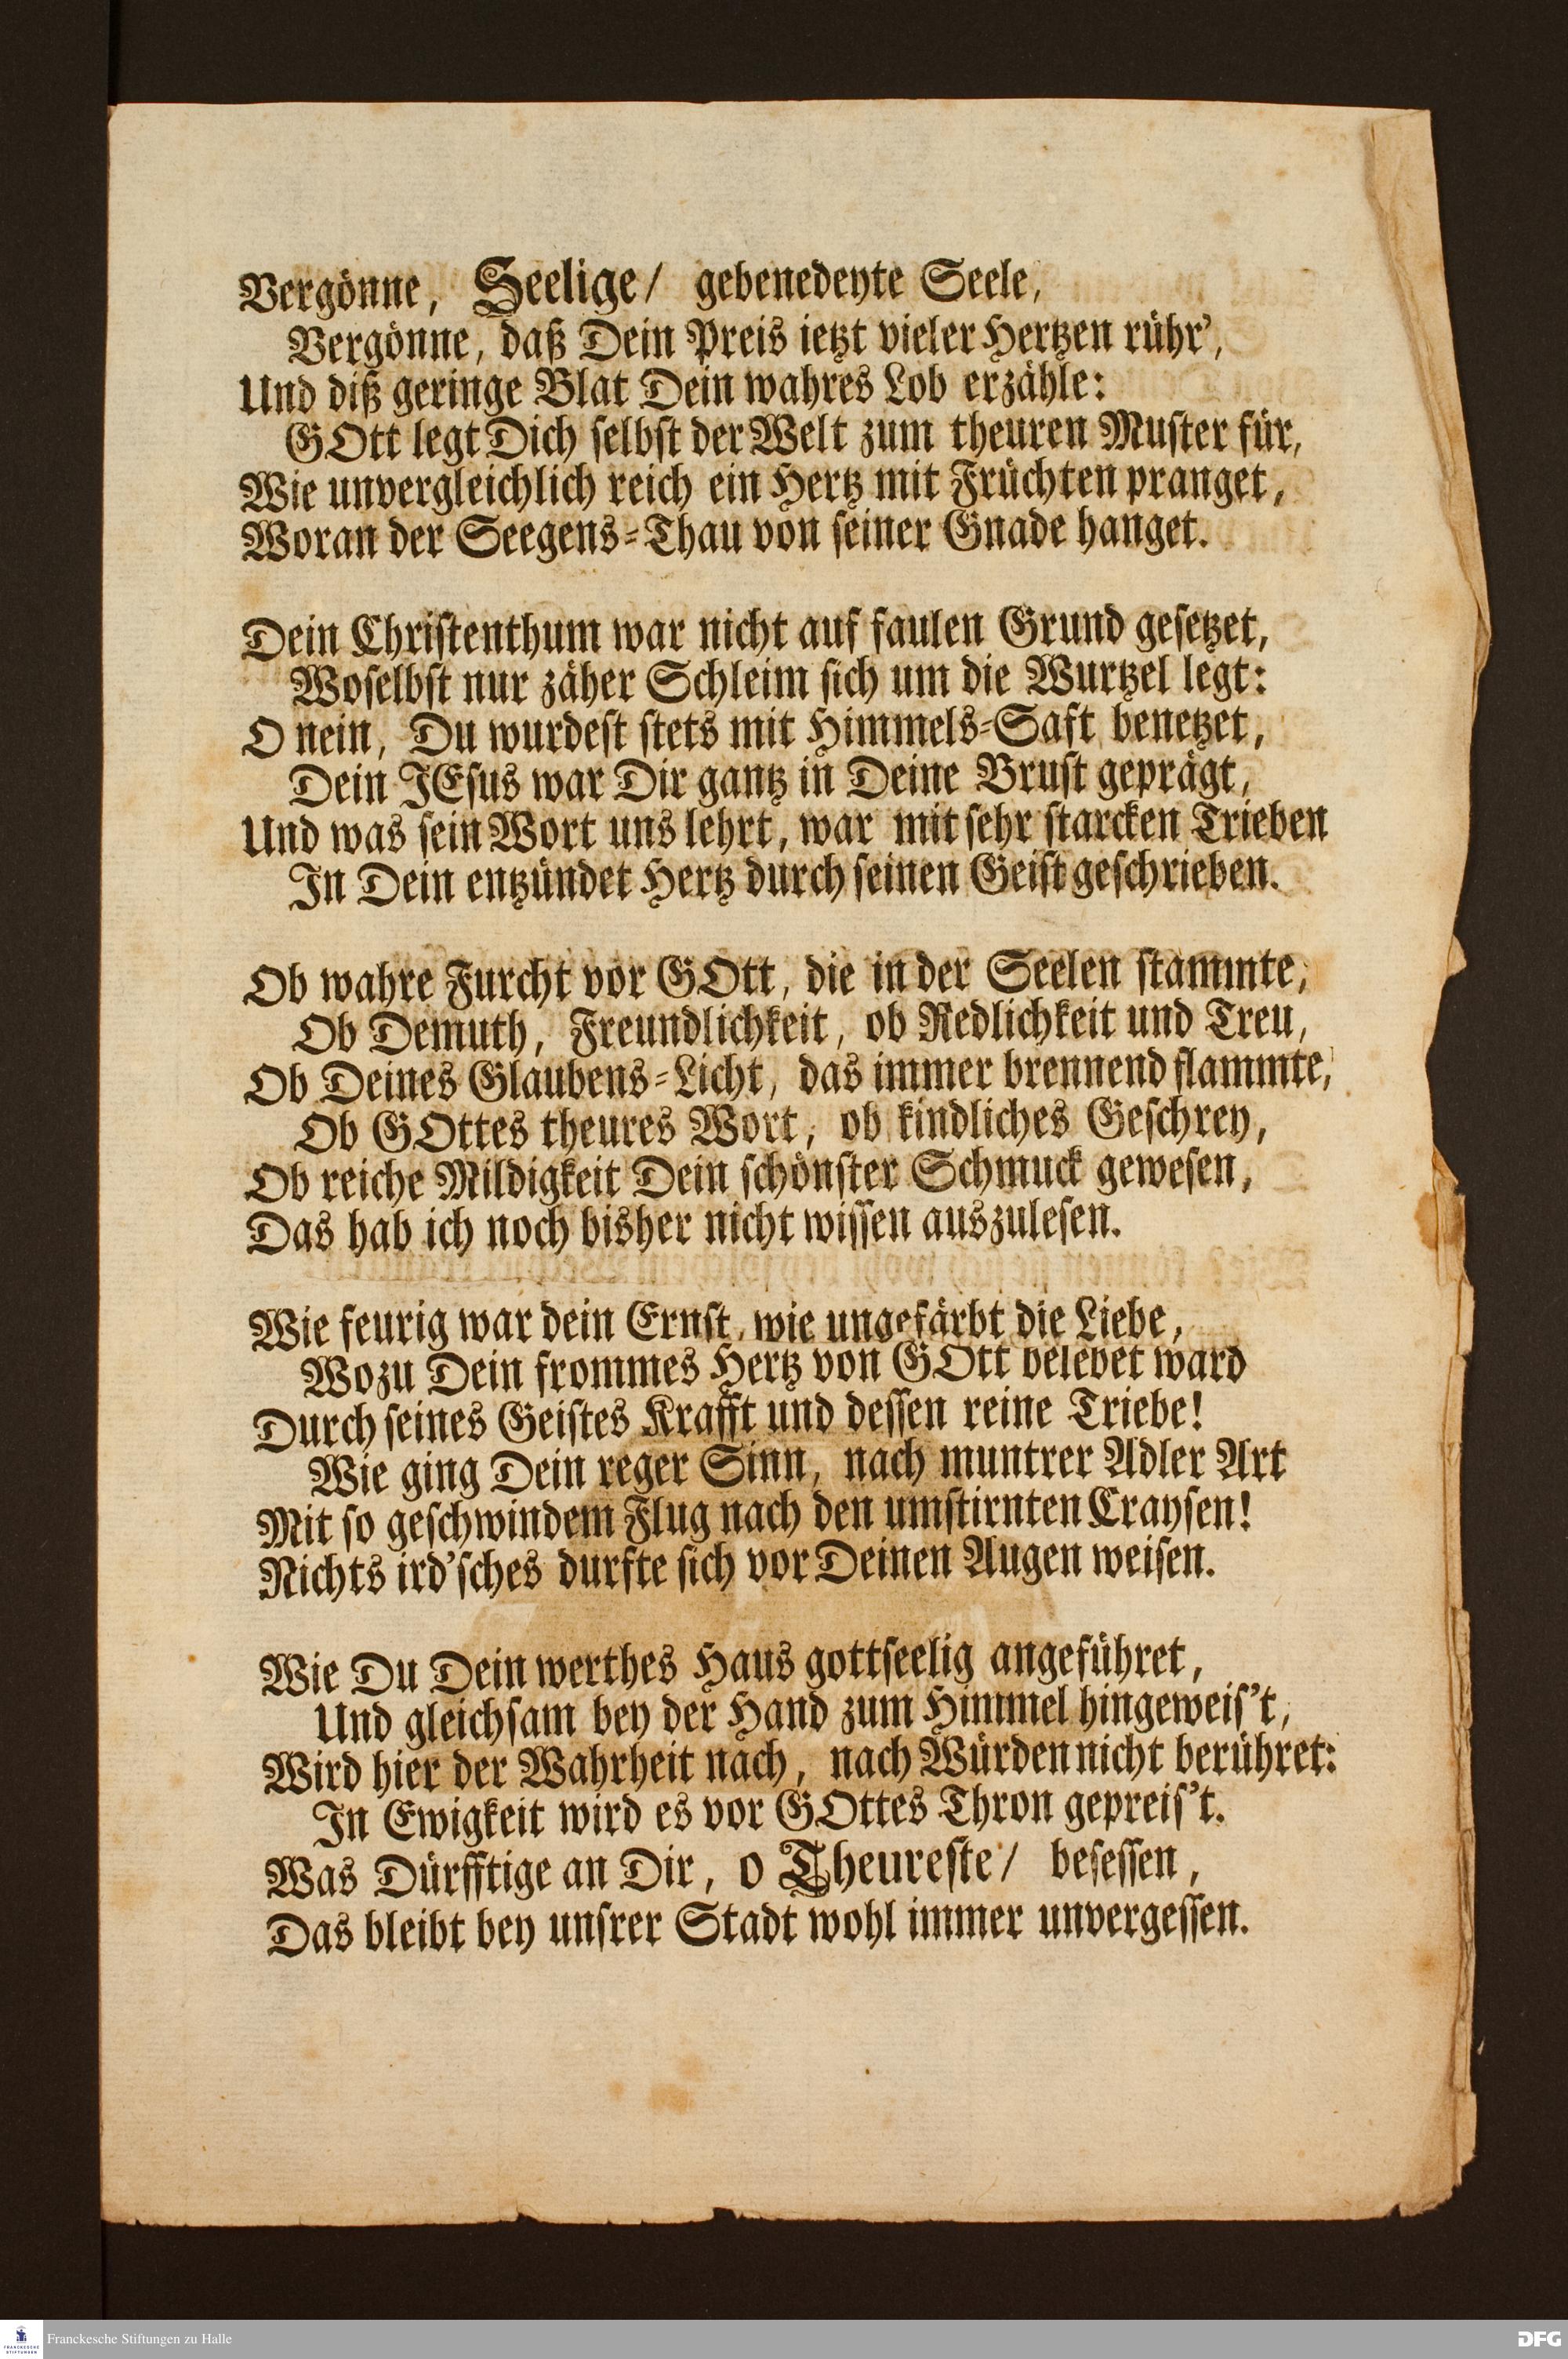 Vergönne, Seelige/ gebenedeyte Seele,
Vergönne, daß Dein Preis ietzt vieler Hertzen rühr’,
Und diß geringe Blat Dein wahres Lob erzähle:
GOtt legt Dich selbst der Welt zum theuren Muster für,
Wie unvergleichlich reich ein Hertz mit Früchten pranget,
Woran der Seegens-Thau von seiner Gnade hanget.
Dein Christenthum war nicht auf faulen Grund gesetzet,
Woselbst nur zäher Schleim sich um die Wurtzel legt:
O nein, Du wurdest stets mit Himmels-Saft benetzet,
Dein JEsus war Dir gantz in Deine Brust geprägt,
Und was sein Wort uns lehrt, war mit sehr starcken Trieben
In Dein entzündet Hertz durch seinen Geist geschrieben.
Ob wahre Furcht vor GOtt, die in der Seelen stammte,
Ob Demuth, Freundlichkeit, ob Redlichkeit und Treu,
Ob Deines Glaubens-Licht, das immer brennend flammte,
Ob GOttes theures Wort, ob kindliches Geschrey,
Ob reiche Mildigkeit Dein schönster Schmuck gewesen,
Das hab ich noch bisher nicht wissen auszulesen.
Wie feurig war dein Ernst, wie ungefärbt die Liebe,
Wozu Dein frommes Hertz von GOtt belebet ward
Durch seines Geistes Krafft und dessen reine Triebe!
Wie ging Dein reger Sinn, nach muntrer Adler Art
Mit so geschwindem Flug nach den umstirnten Craysen!
Nichts ird’sches durfte sich vor Deinen Augen weisen.
Wie Du Dein werthes Haus gottseelig angeführet,
Und gleichsam bey der Hand zum Himmel hingeweis’t,
Wird hier der Wahrheit nach, nach Würden nicht berühret:
In Ewigkeit wird es vor GOttes Thron gepreis’t.
Was Dürfftige an Dir, o Theureste/ besessen,
Das bleibt bey unsrer Stadt wohl immer unvergessen.
FRANCKESCHE
STIFTUNGEN
Franckesche Stiftungen zu Halle
DFG